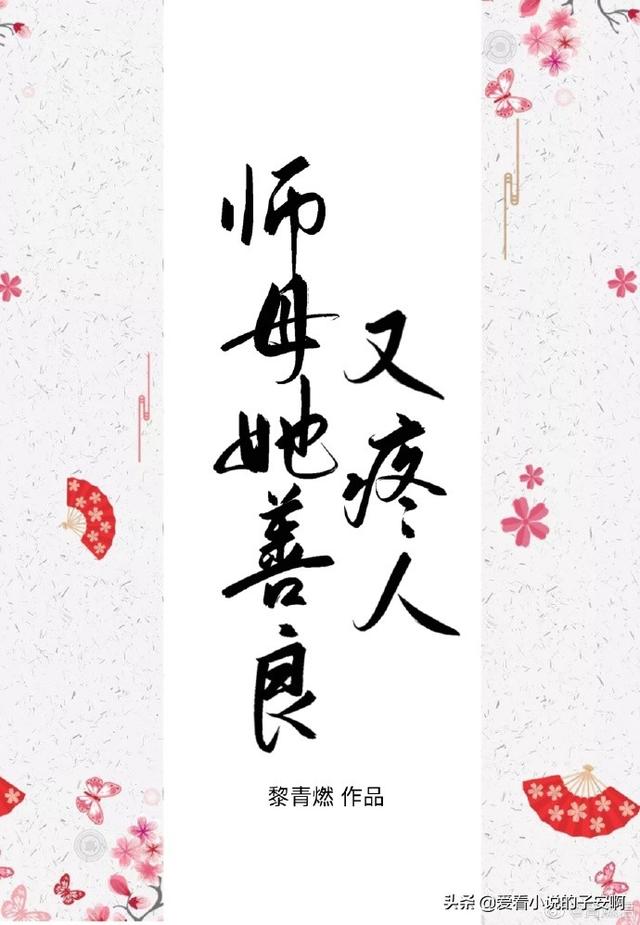 师母她善良
又疼人
黎青燃 作品
头条 @爱看小说的子安啊